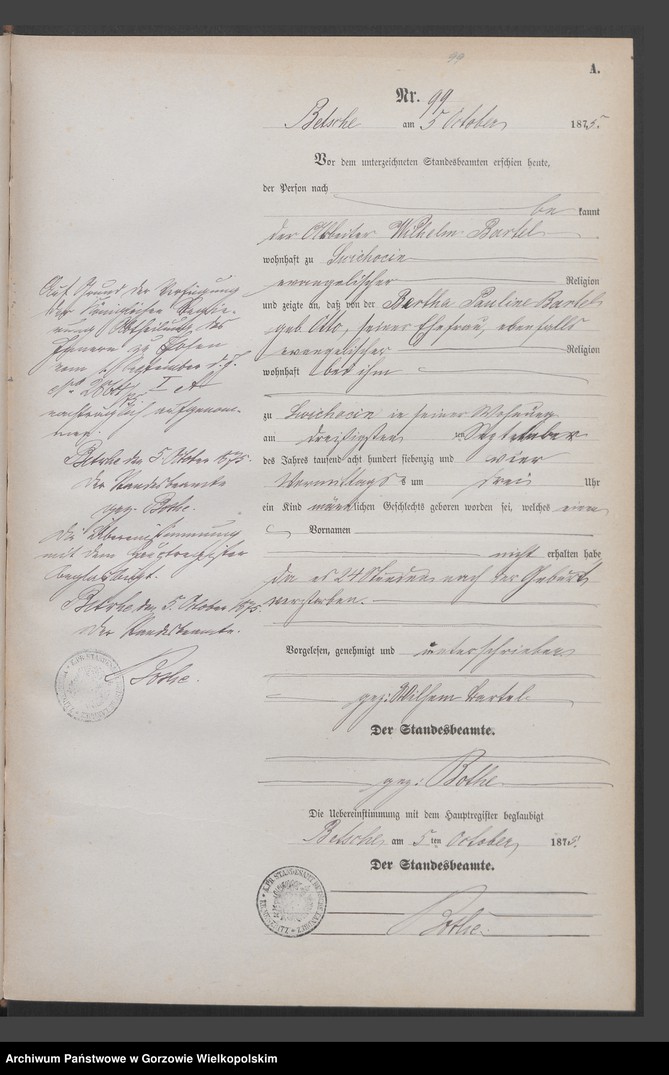 99
A.
Nr. 99
Betsche am 5 October 1875.
Vor dem unterzeichneten Standesbeamten erschien heute,
der Person nach
be kannt
der Arbeiter Wilhelm Bartel
wohnhaft zu Swichocin
evangelischer Religion
und zeigte an, daß von der Bertha Pauline Bartel
geb. Otto, seiner Ehefrau, ebenfalls
evangelischer Religion
wohnhaft bei ihm
zu Swichocin in seiner Wohnung
am dreißigsten September
des Jahres tausend acht hundert siebenzig und vier
Vormittags um drei Uhr
ein Kind männlichen Geschlechts geboren worden sei, welches einen
Vornamen
nicht erhalten habe
da es 24 Stunden nach der Geburt
verstorben.
Vorgelesen, genehmigt und unterschrieben
gez: Wilhem Bartel
Der Standesbeamte.
gez: Bothe
Die Uebereinstimmung mit dem Hauptregister beglaubigt
Betsche am 5 ten October 1875.
Der Standesbeamte.
Bothe.
Auf Grund der Verfügung
der Königlichen Regie-
rung Abtheilung des
Innern zu Posen
vom September d. J.
I A
nachträglich aufgenom-
men.
Betsche den 5 Oktober 1875.
Der Standesbeamte
gez. Bothe.
Die Übereinstimmung
mit dem Hauptregister
beglaubigt.
Betsche den 5. Oktober 1875.
Der Standesbeamte.
Bothe.
Archiwum Państwowe w Gorzowie Wielkopolskim